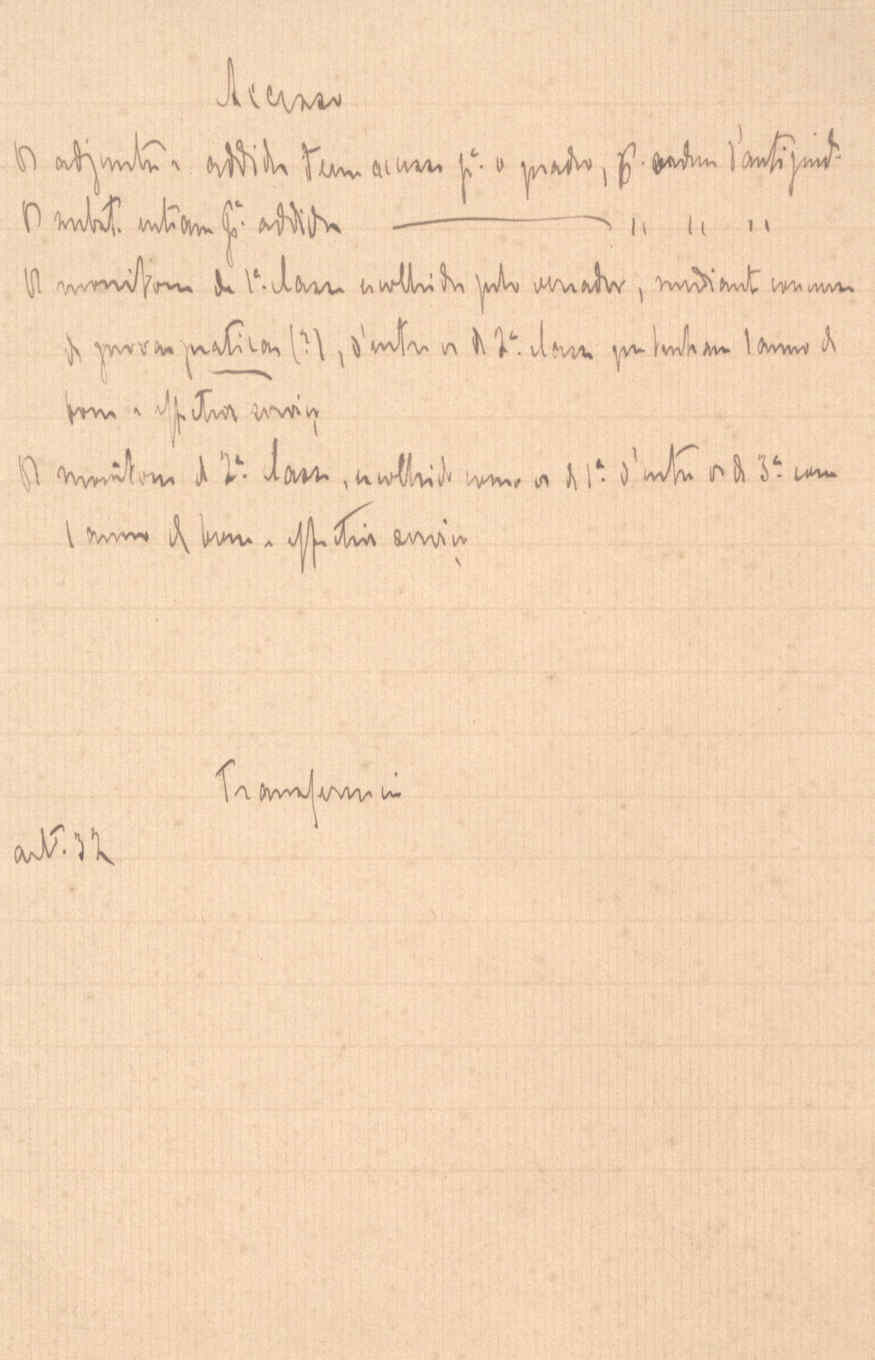 Accesso
Os adjuntos e addidos teem accesso pª. o quadro, p. ordem d'antiguid.
Os subst. entram pª. addidos ———— " " "
Os monitores de 1ª. classe escolhidos pelo vereador, mediante concurso
de provas praticas (?), d'entre os de 2ª. classe que tenham 1 anno de
bom e effectivo serviço
Os monitores de 2ª. classe, escolhidos como os de 1ª. d'entre os de 3ª. com
1 anno de bom e effectivo serviço
Transferencia
art. 32